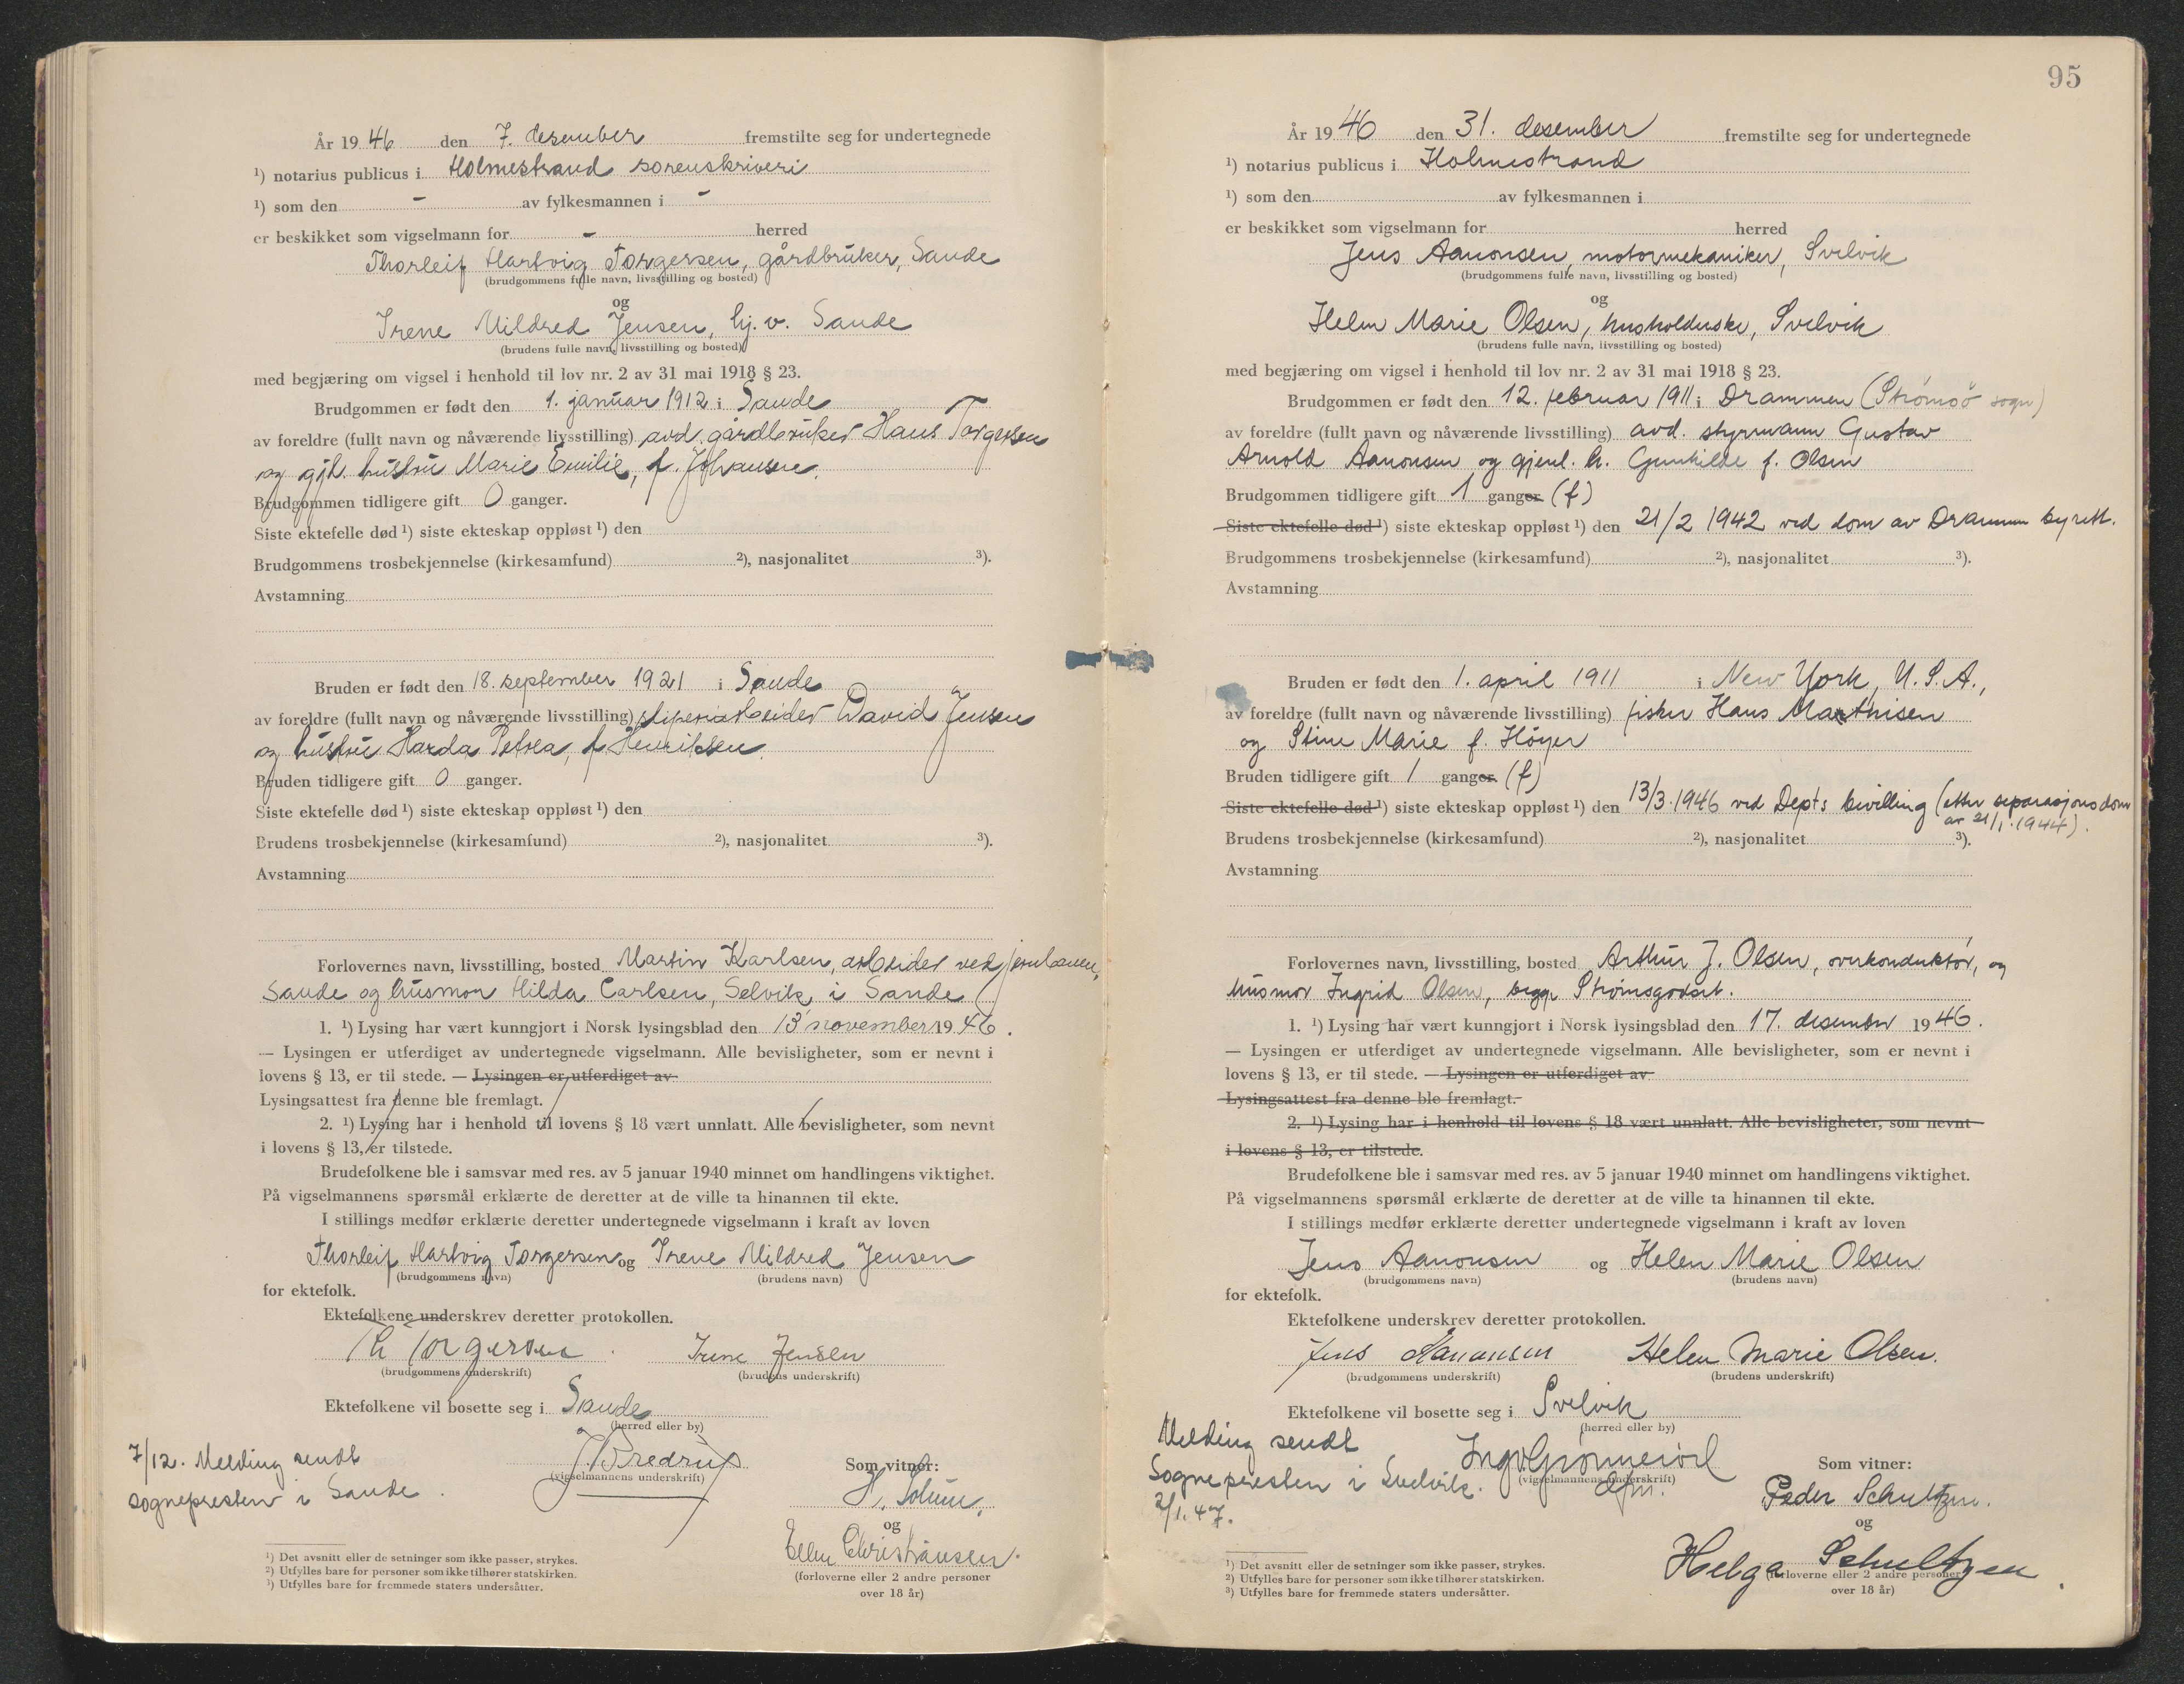 År 1946 den 7. desember fremstilte seg for undertegnede
¹) notarius publicus i Holmestrand sorenskriveri
¹) som den - av fylkesmannen i -
er beskikket som vigselmann for - herred
Thorleif Hartvig Torgersen, gårdbruker, Sande
(brudgommens fulle navn, livsstilling og bosted)
og
Irene Mildred Jensen, hj. v. Sande
(brudens fulle navn, livsstilling og bosted)
med begjæring om vigsel i henhold til lov nr. 2 av 31 mai 1918 § 23.
Brudgommen er født den 1. januar 1912 i Sande
av foreldre (fullt navn og nåværende livsstilling) avd. gårdbruker Hans Torgersen
og gjh. hustru Marie Emilie, f. Johansen.
Brudgommen tidligere gift 0 ganger.
Siste ektefelle død ¹) siste ekteskap oppløst ¹) den
Brudgommens trosbekjennelse (kirkesamfund) ²), nasjonalitet ³).
Avstamning
Bruden er født den 18. september 1921 i Sande
av foreldre (fullt navn og nåværende livsstilling) sliperiarbeider David Jensen
og hustru Harda Petrea, f. Henriksen.
Bruden tidligere gift 0 ganger.
Siste ektefelle død ¹) siste ekteskap oppløst ¹) den
Brudens trosbekjennelse (kirkesamfund) ²), nasjonalitet ³).
Avstamning
Forlovernes navn, livsstilling, bosted Martin Karlsen, arbeider ved jernbanen,
Sande og husmor Hilda Carlsen, Selvik, i Sande
1. ¹) Lysing har vært kunngjort i Norsk lysingsblad den 13 november 1946.
— Lysingen er utferdiget av undertegnede vigselmann. Alle bevisligheter, som er nevnt i
lovens § 13, er til stede. — Lysingen er utferdiget av
Lysingsattest fra denne ble fremlagt.
2. ¹) Lysing har i henhold til lovens § 18 vært unnlatt. Alle bevisligheter, som nevnt
i lovens § 13, er tilstede.
Brudefolkene ble i samsvar med res. av 5 januar 1940 minnet om handlingens viktighet.
På vigselmannens spørsmål erklærte de deretter at de ville ta hinannen til ekte.
I stillings medfør erklærte deretter undertegnede vigselmann i kraft av loven
Thorleif Hartvig Torgersen og Irene Mildred Jensen
(brudgommens navn) (brudens navn)
for ektefolk.
Ektefolkene underskrev deretter protokollen.
Th Torgersen. Irene Jensen
(brudgommens underskrift) (brudens underskrift)
Ektefolkene vil bosette seg i Sande
(herred eller by)
7/12. Melding sendt
sognepresten i Sande.
J. Bredrup
(vigselmannens underskrift)
Som vitner:
H. Solum,
og
Ellen Christiansen.
(forloverne eller 2 andre personer
over 18 år)
¹) Det avsnitt eller de setninger som ikke passer, strykes.
²) Utfylles bare for personer som ikke tilhører statskirken.
³) Utfylles bare for fremmede staters undersåtter.
95
År 1946 den 31. desember fremstilte seg for undertegnede
¹) notarius publicus i Holmestrand
¹) som den av fylkesmannen i
er beskikket som vigselmann for herred
Jens Aanonsen, motormekaniker, Svelvik
(brudgommens fulle navn, livsstilling og bosted)
og
Helen Marie Olsen, husholderske, Svelvik
(brudens fulle navn, livsstilling og bosted)
med begjæring om vigsel i henhold til lov nr. 2 av 31 mai 1918 § 23.
Brudgommen er født den 12. februar 1911 i Drammen (Strømsö sogn)
av foreldre (fullt navn og nåværende livsstilling) avd. styrmann Gustav
Arnold Aanonsen og gjenl. h. Gunhilde f. Olsen
Brudgommen tidligere gift 1 ganger (f)
Siste ektefelle død ¹) siste ekteskap oppløst ¹) den 21/2 1942 ved dom av Drammen byrett.
Brudgommens trosbekjennelse (kirkesamfund) ²), nasjonalitet ³).
Avstamning
Bruden er født den 1. april 1911 i New York, U.S.A.,
av foreldre (fullt navn og nåværende livsstilling) fisker Hans Mathisen
og Stine Marie f. Höyer
Bruden tidligere gift 1 ganger (f)
Siste ektefelle død ¹) siste ekteskap oppløst ¹) den 13/3.1946 ved Dept's bevilling (etter separasjonsdom
av 21/1.1944).
Brudens trosbekjennelse (kirkesamfund) ²), nasjonalitet ³).
Avstamning
Forlovernes navn, livsstilling, bosted Arthur J. Olsen, overkonduktør, og
husmor Ingrid Olsen, begge Strømsgodset.
1. ¹) Lysing har vært kunngjort i Norsk lysingsblad den 17. desember 1946.
— Lysingen er utferdiget av undertegnede vigselmann. Alle bevisligheter, som er nevnt i
lovens § 13, er til stede. — Lysingen er utferdiget av
Lysingsattest fra denne ble fremlagt.
2. ¹) Lysing har i henhold til lovens § 18 vært unnlatt. Alle bevisligheter, som nevnt
i lovens § 13, er tilstede.
Brudefolkene ble i samsvar med res. av 5 januar 1940 minnet om handlingens viktighet.
På vigselmannens spørsmål erklærte de deretter at de ville ta hinannen til ekte.
I stillings medfør erklærte deretter undertegnede vigselmann i kraft av loven
Jens Aanonsen og Helen Marie Olsen
(brudgommens navn) (brudens navn)
for ektefolk.
Ektefolkene underskrev deretter protokollen.
Jens Aanonsen Helen Marie Olsen.
(brudgommens underskrift) (brudens underskrift)
Ektefolkene vil bosette seg i Svelvik
(herred eller by)
Melding sendt
Sognepresten i Svelvik.
2/1.47.
(vigselmannens underskrift)
Som vitner:
Peder Schultzen.
og
Helga Schultzen.
(forloverne eller 2 andre personer
over 18 år)
¹) Det avsnitt eller de setninger som ikke passer, strykes.
²) Utfylles bare for personer som ikke tilhører statskirken.
³) Utfylles bare for fremmede staters undersåtter.